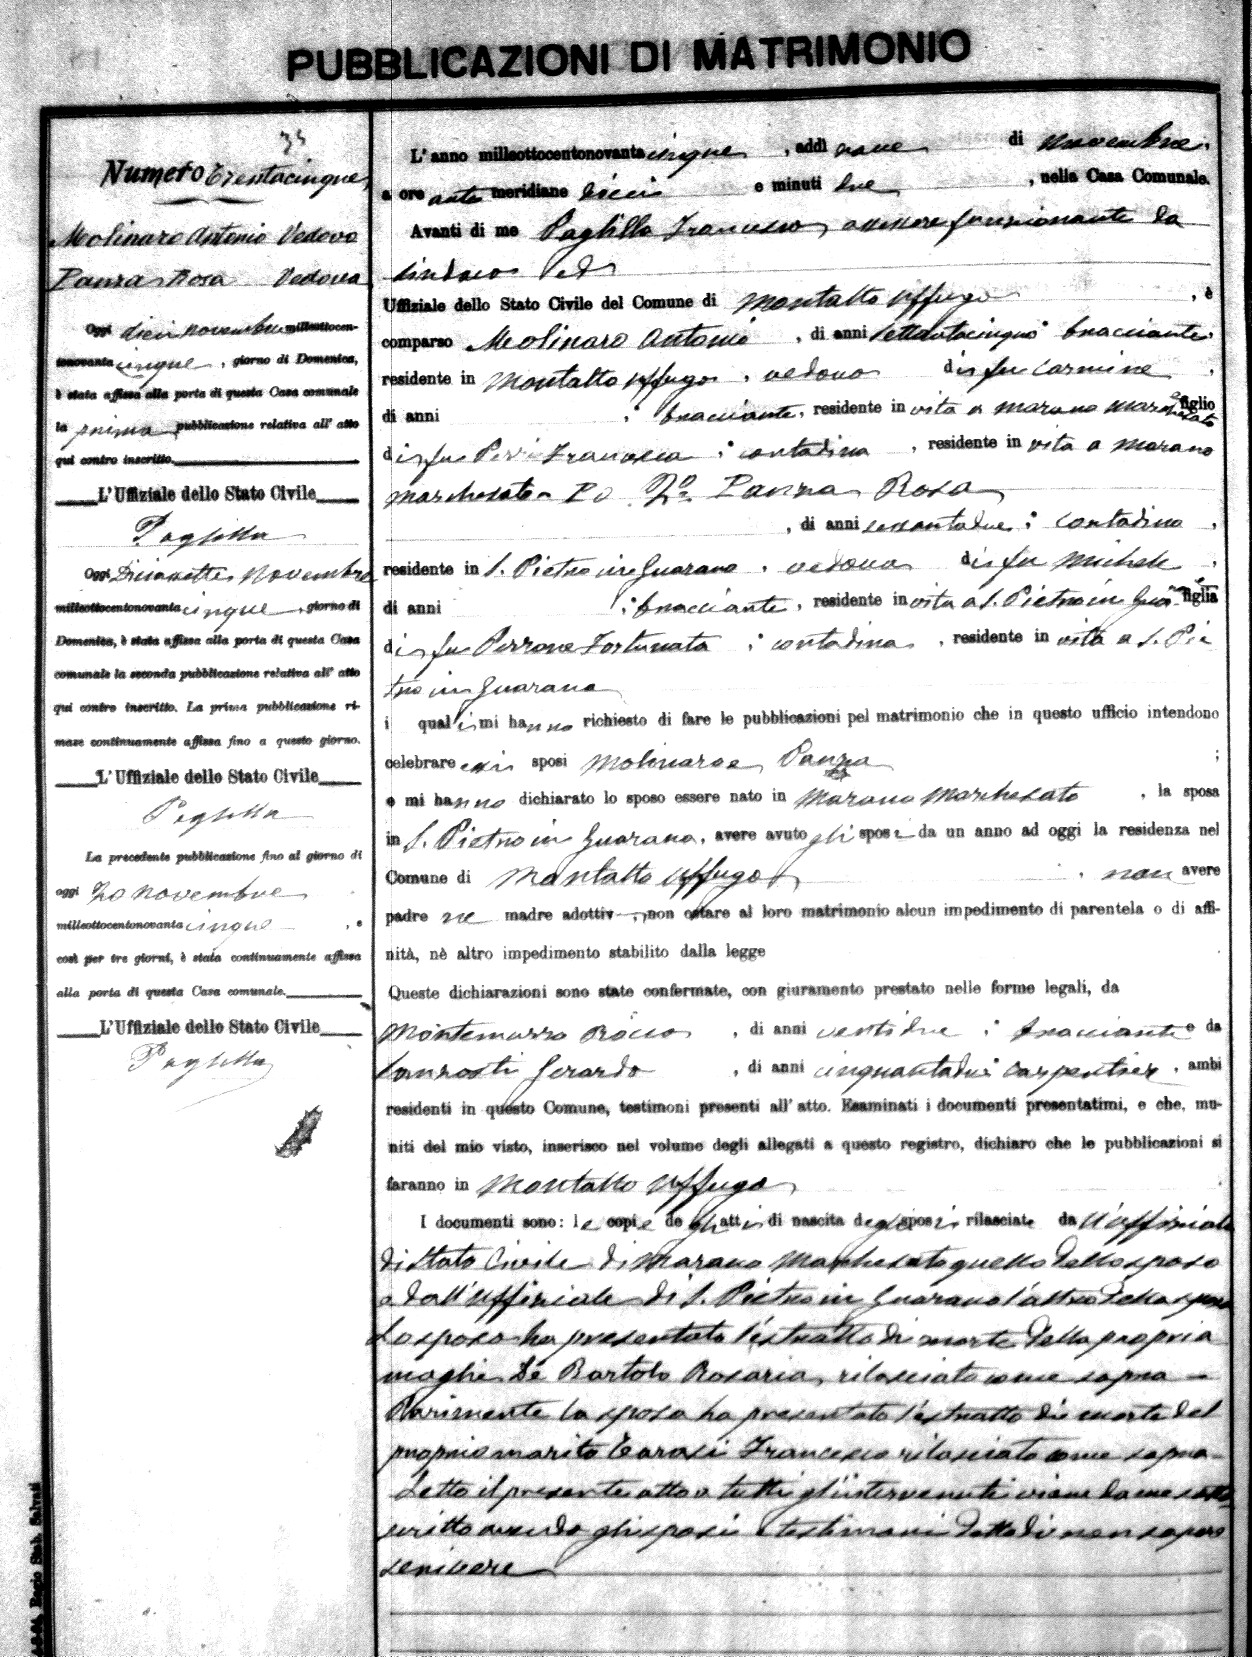 PUBBLICAZIONI DI MATRIMONIO
35
Numero Trentacinque
Molinaro Antonio Vedovo
Panza Rosa Vedova
Oggi dieci novembre milleottocen-
tonovanta cinque, giorno di Domenica,
è stata affissa alla porta di questa Casa comunale
la prima pubblicazione relativa all' atto
qui contro inscritto.
L'Uffiziale dello Stato Civile
Paglilla
Oggi Diciassette Novembre
milleottocentonovanta cinque, giorno di
Domenica, è stata affissa alla porta di questa Casa
comunale la seconda pubblicazione relativa all' atto
qui contro inscritto. La prima pubblicazione ri-
mase continuamente affissa fino a questo giorno.
L'Uffiziale dello Stato Civile
Paglilla
La precedente pubblicazione fino al giorno di
oggi 20 novembre
milleottocentonovanta cinque, e
così per tre giorni, è stata continuamente affissa
alla porta di questa Casa comunale.
L'Uffiziale dello Stato Civile
Paglilla
L' anno milleottocentonovanta cinque, addì nove di novembre,
a ore ante meridiane dieci e minuti due, nella Casa Comunale.
Avanti di me Paglilla Francesco assessore funzionante da
sindaco ed
Uffiziale dello Stato Civile del Comune di Montalto Uffugo, è
comparso Molinaro Antonio, di anni settantacinque bracciante,
residente in Montalto Uffugo, vedovo di fu Carmine,
di anni ; bracciante, residente in vita a Marano Marchesato figlio
di fu Perri Francesca; contadina, residente in vita a Marano
Marchesato 2º Panza Rosa
, di anni sessantadue; contadina,
residente in S. Pietro in Guarano, vedova di fu Michele,
di anni ; bracciante, residente in vita a S. Pietro in Gua figlia
di fu Perrone Fortunata; contadina, residente in vita a S. Pie
tro in Guarano
i quali mi hanno richiesto di fare le pubblicazioni pel matrimonio che in questo ufficio intendono
celebrare essi sposi Molinaro e Panza ;
e mi hanno dichiarato lo sposo essere nato in Marano Marchesato, la sposa
in S. Pietro in Guarano, avere avuto gli sposi da un anno ad oggi la residenza nel
Comune di Montalto Uffugo, non avere
padre ne madre adottiv , non ostare al loro matrimonio alcun impedimento di parentela o di affi-
nità, nè altro impedimento stabilito dalla legge
Queste dichiarazioni sono state confermate, con giuramento prestato nelle forme legali, da
Montemurro Rocco, di anni ventidue; bracciante e da
Gerardo, di anni cinquantadue carpentier, ambi
residenti in questo Comune, testimoni presenti all' atto. Esaminati i documenti presentatimi, e che, mu-
niti del mio visto, inserisco nel volume degli allegati a questo registro, dichiaro che le pubblicazioni si
faranno in Montalto Uffugo
I documenti sono: le copie degli atti di nascita degli sposi rilasciate da l'uffiziale
di Stato Civile di Marano Marchesato quello dello sposo
e dall'uffiziale di S. Pietro in Guarano l'altro della sposa
Lo sposo ha presentato l'estratto di morte della propria
moglie De Bartolo Rosaria, rilasciato come sopra
Parimente la sposa ha presentato l'estratto di morte del
proprio marito Francesco rilasciato come sopra
Letto il presente atto a tutti gl'intervenuti viene da me sotto
scritto avendo gli sposi e testimoni detto di non sapere
scrivere
Regio Stab. Salvati